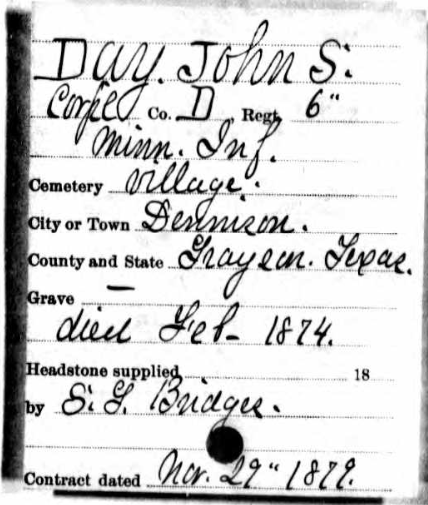 Day. John S.
Corpl Co. D , Regt. 6"
Minn. Inf.
Cemetery Village.
City or Town Dennison.
County and State Grayson. Texas.
Grave —
died Feb- 1874.
Headstone supplied 18
by S. G. Bridges.
Contract dated Nov. 29" 1879.